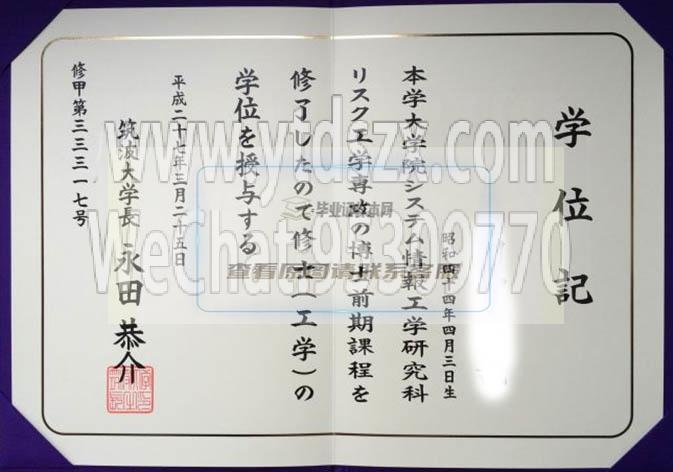 学位記
昭和四十四年四月三日生
本学大学院システム情報工学研究科
リスク工学専攻の博士前期課程を
修了したので修士(工学)の
学位を授与する
平成二十七年三月二十五日
筑波大学長 永田恭介
修甲第三三三一七号
www.ytdszx.com
Wechat:91399770
毕业证样本网
查看原图请联系客服